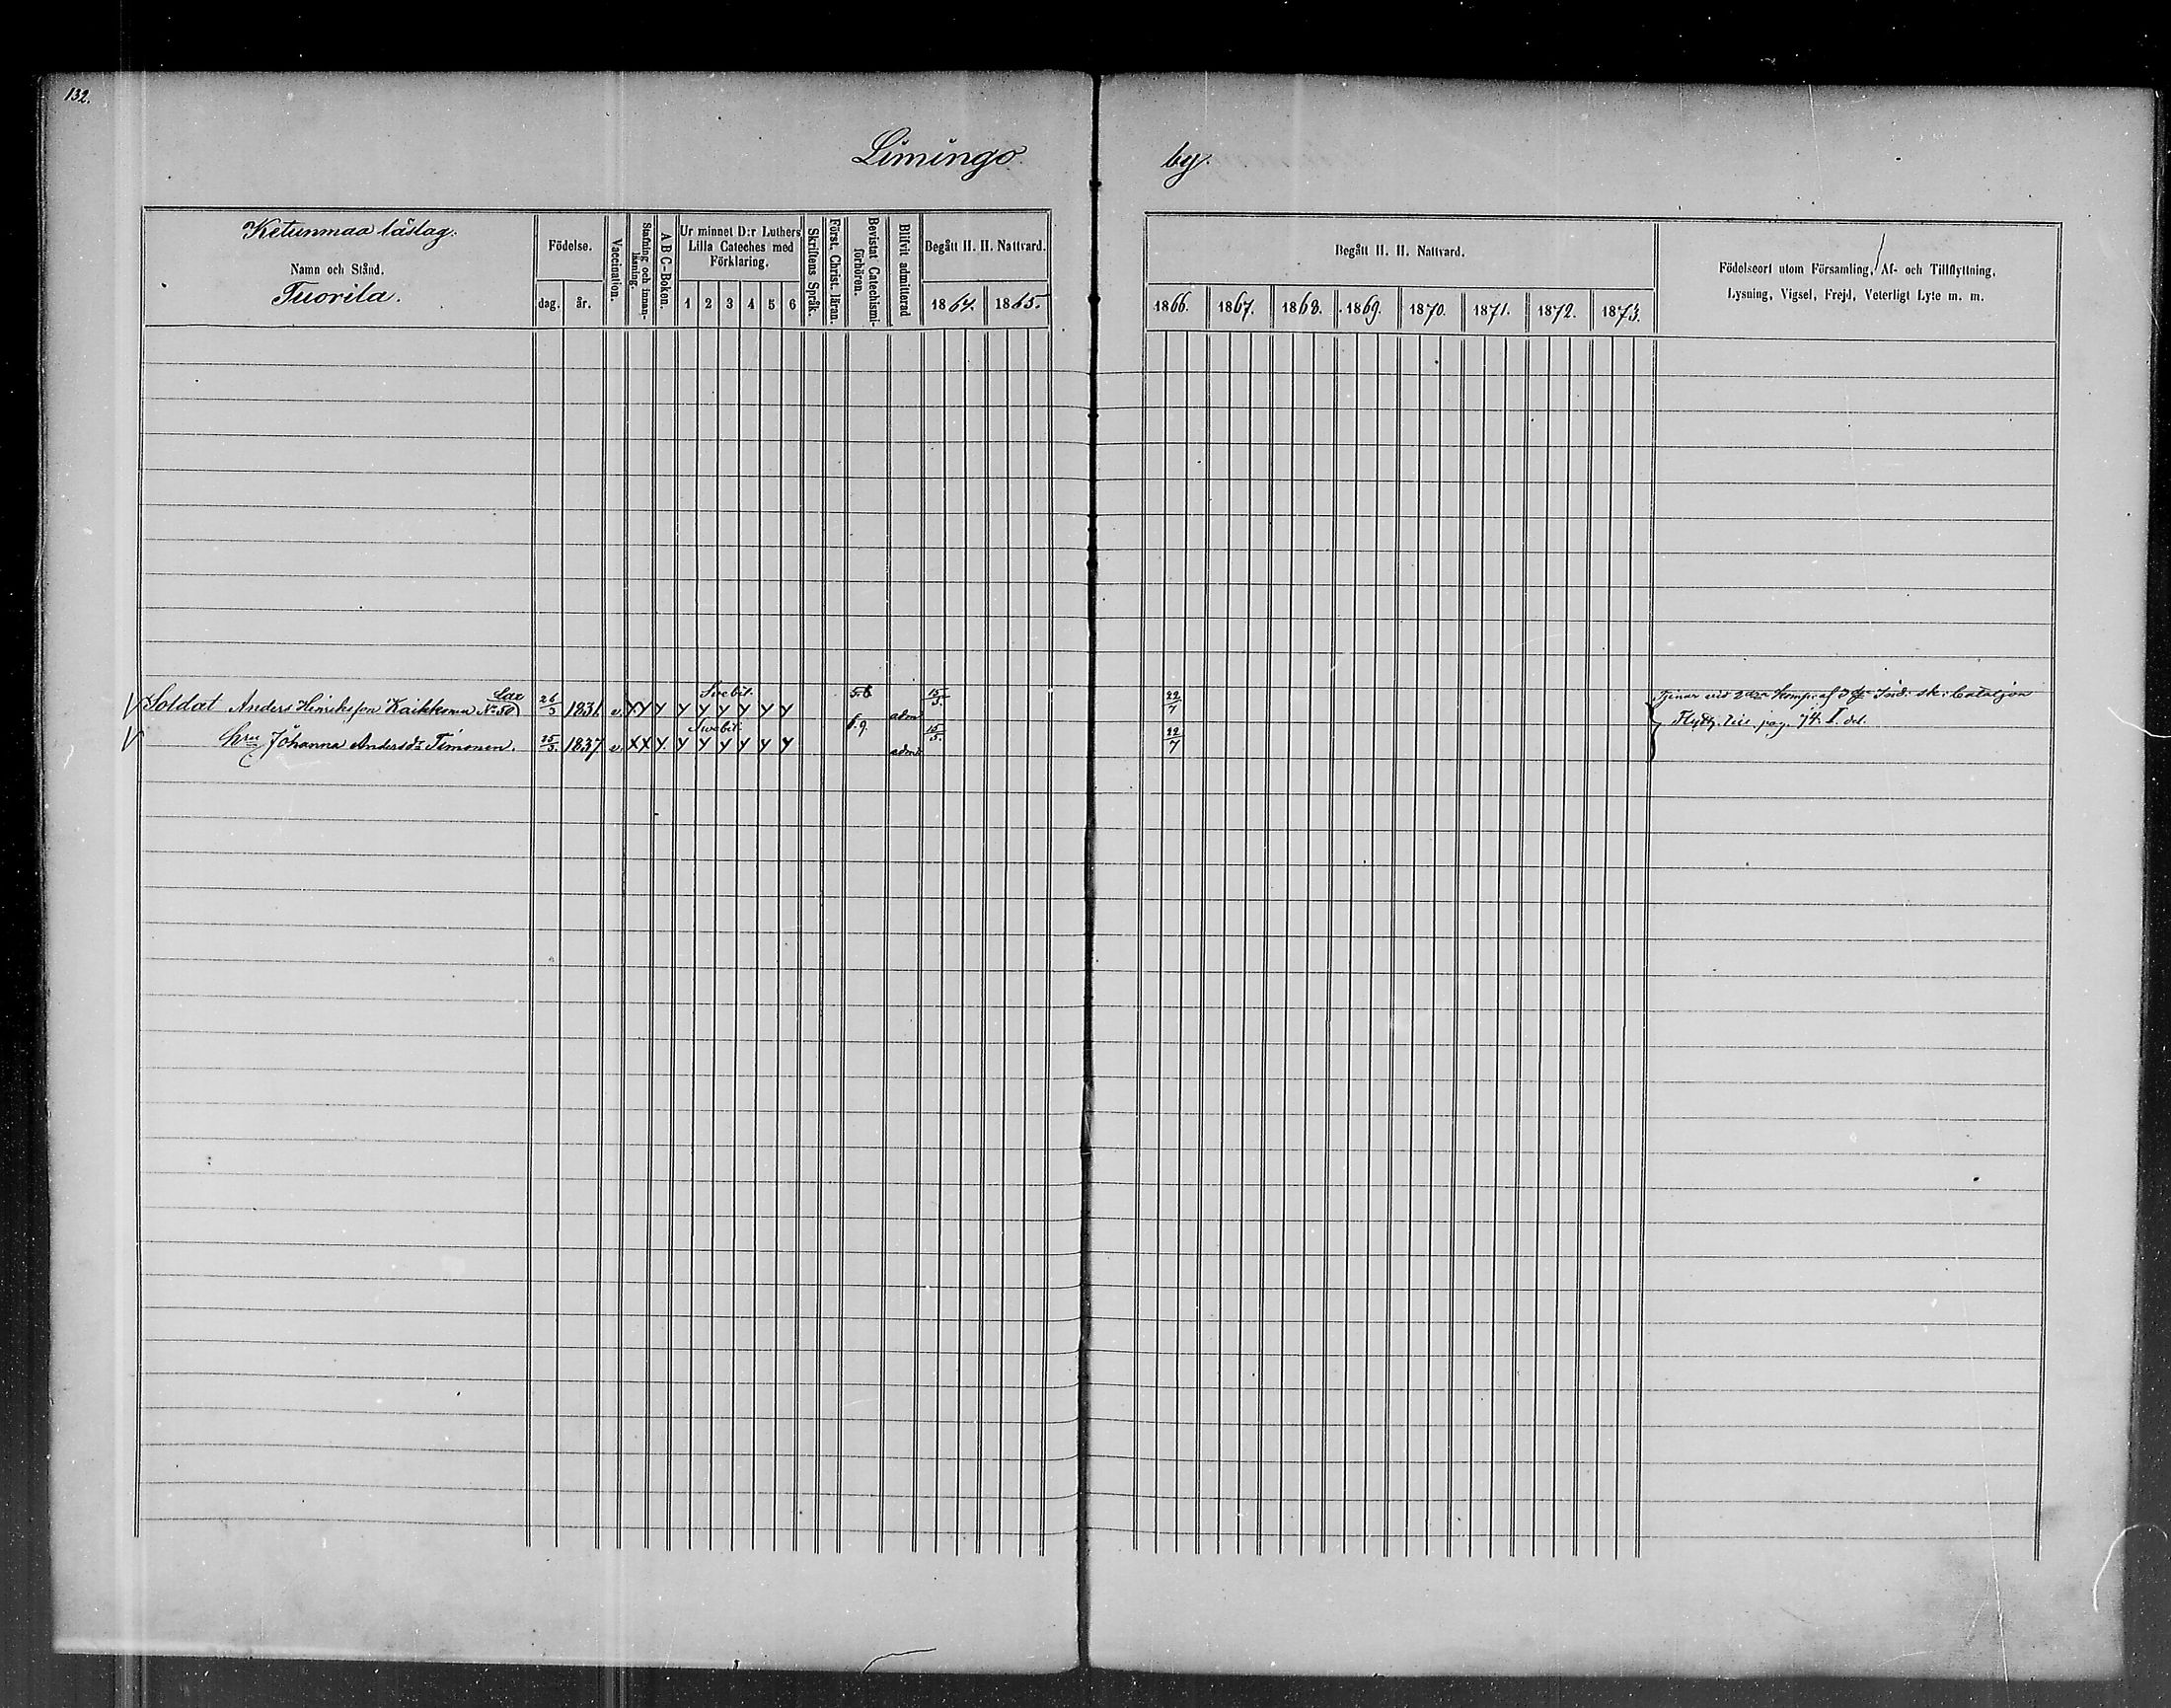 132.
Limingo by.
Ketunmaa läslag.
Namn och Stånd.
Tuorila.
Födelse.
dag. år.
Vaccination.
Stafning och innanläsning.
A B C-Boken.
Ur minnet D:r Luthers
Lilla Cateches med
Förklaring.
1 2 3 4 5 6
Skriftens Språk.
Först. Christ. läran.
Bevistat Catechismiförhören.
Blifvit admitterad
Begått H. H. Nattvard.
1864. 1865.
Begått H. H. Nattvard.
1866. 1867. 1868. 1869. 1870. 1871. 1872. 1873.
Födelseort utom Församling, Af- och Tillflyttning,
Lysning, Vigsel, Frejd, Veterligt Lyte m. m.
Soldat Anders Hinriksson Kaikkonen No 50 26/3 1831. v. X Y Y Y Y Y Y Y Y Svebil. 5.6 admr 15/5. 22/7 Tjenar vid 2dra Komp. af Ind. sk. bataljon
Hru Johanna Andersdr Timonen. 25/3. 1837 v. X X Y. Y Y Y Y Y Y Svebil. 6.9. admr 15/5. 22/7 Flyttg. till pag. 74. I. del.